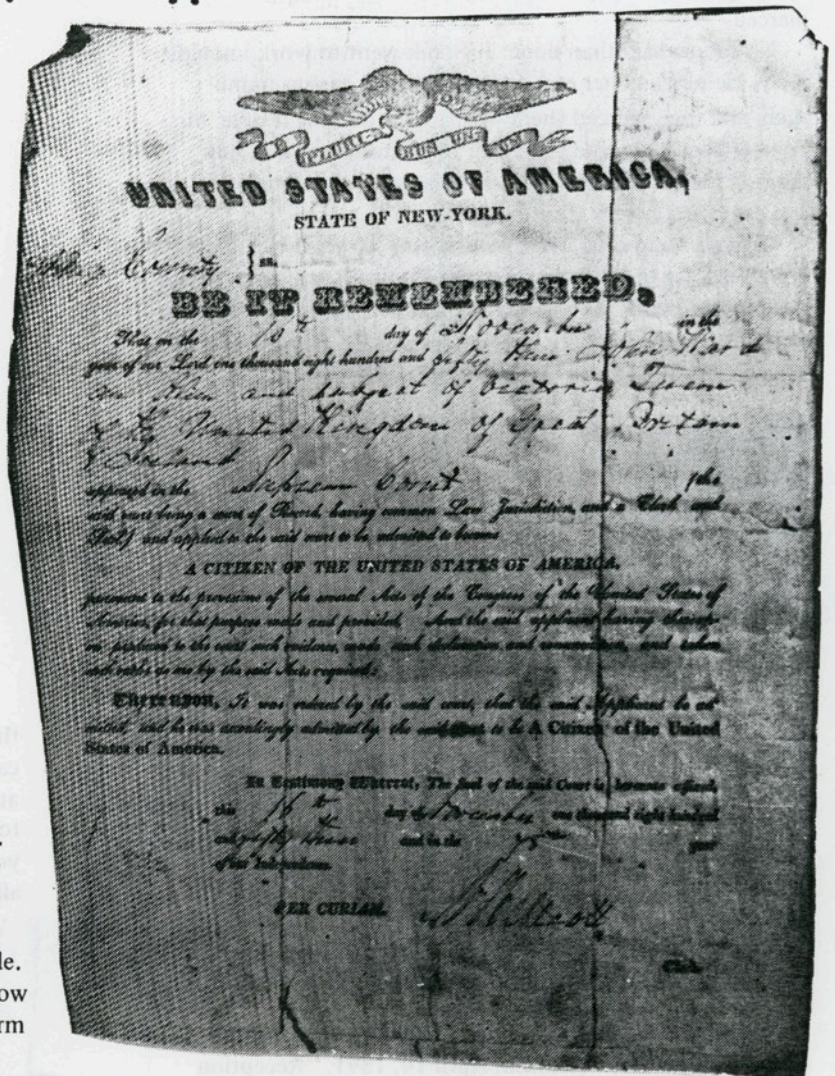 E PLURIBUS UNUM
UNITED STATES OF AMERICA,
STATE OF NEW-YORK.
County } ss.
BE IT REMEMBERED,
That on the 10th day of November in the
year of our Lord one thousand eight hundred and fifty John Ward
an and subject of Victoria Queen
of the United Kingdom of Great Britain
& Ireland
appeared in the Supreme Court (the
said court being a court of Record, having common Law Jurisdiction, and a Clerk and
Seal) and applied to the said court to be admitted to become
A CITIZEN OF THE UNITED STATES OF AMERICA,
pursuant to the provisions of the several Acts of the Congress of the United States of
America, for that purpose made and provided. And the said applicant having thereup-
on produced to the court such evidence, made such declaration and renunciation, and taken
such oaths as are by the said Acts required;
THEREUPON, It was ordered by the said court, that the said Applicant be ad-
mitted, and he was accordingly admitted by the said court to be A Citizen of the United
States of America.
In Testimony Whereof, The Seal of the said Court is hereunto affixed,
this day of November one thousand eight hundred
and fifty and in the year
of our Independence.
PER CURIAM.
Clerk.
le.
ow
rm